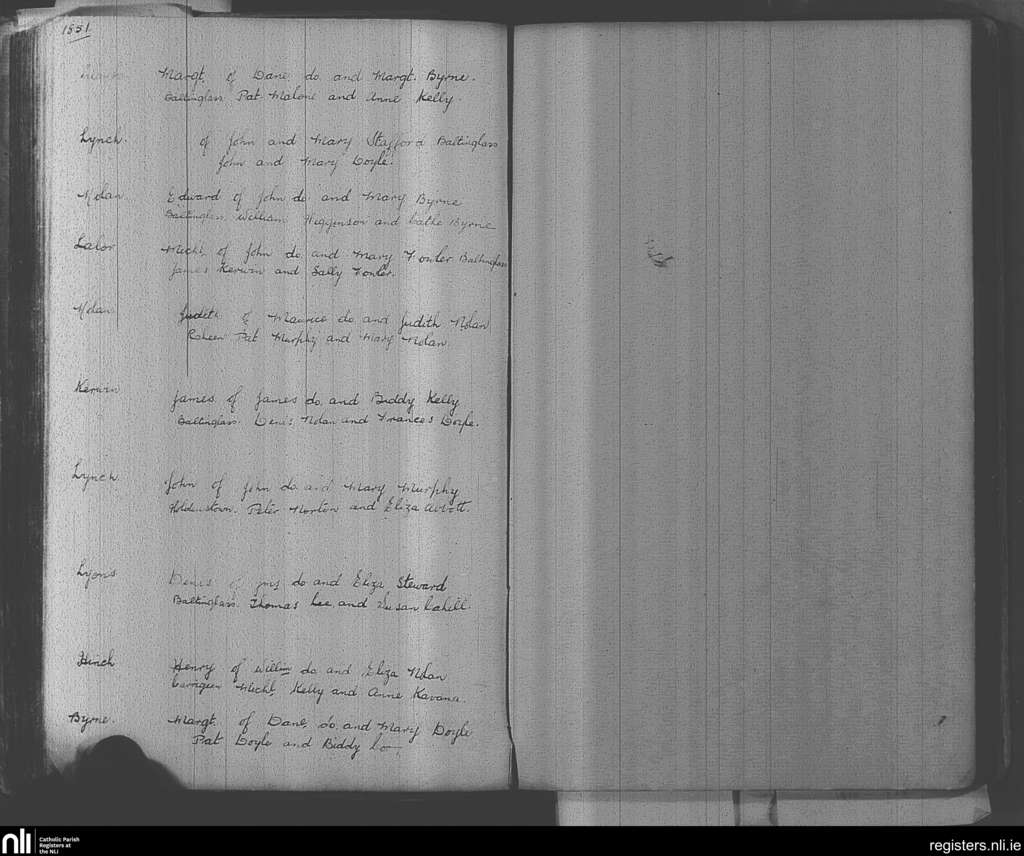 1851
Margt. of Dane do. and Margt. Byrne.
Baltinglass Pat Malone and Anne Kelly.
Lynch. of John and Mary Stafford Baltinglass
John and Mary Doyle.
Nolan Edward of John do. and Mary Byrne
Baltinglass. William Higginson and Cathe Byrne
Lalor Michl. of John do. and Mary Fowler Baltinglass
James Kerwin and Sally Fowler.
Nolan Judith of Maurice do. and Judith Nolan
Pat Murphy and Mary Nolan.
Kerwin James of James do. and Biddy Kelly
Baltinglass. Denis Nolan and Frances Doyle.
Lynch John of John do. and Mary Murphy
Holdenstown. Peter Norton and Eliza Abbott.
Lyons Denis of do and Eliza Steward
Baltinglass. Thomas Lee and Susan Cahill
Hinch Henry of Willm do. and Eliza Nolan
Carrigeen Michl. Kelly and Anne Kavana.
Byrne. Margt. of Dane. do. and Mary Doyle
Pat Doyle and Biddy Do
nli Catholic Parish
Registers at
the NLI
registers.nli.ie